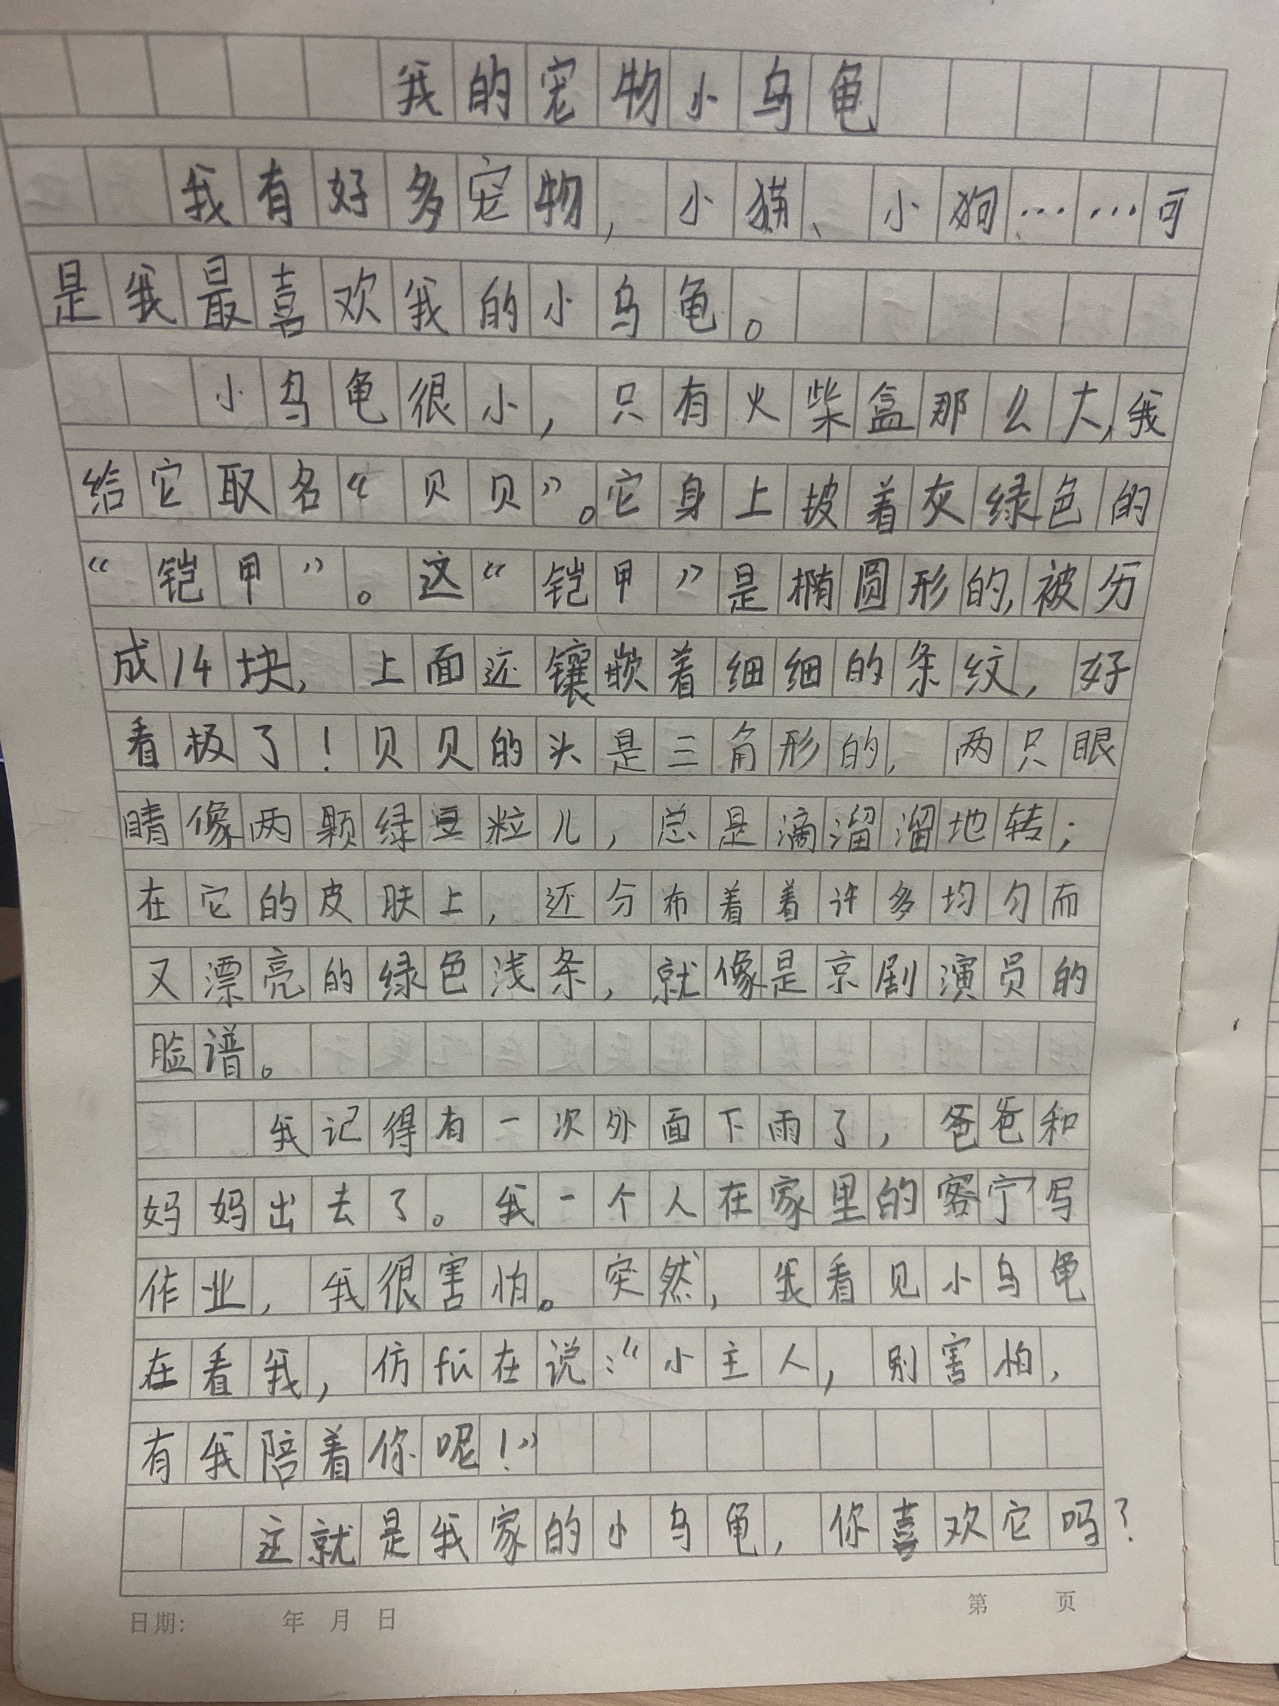 我的宠物小乌龟
我有好多宠物，小猫、小狗……可
是我最喜欢我的小乌龟。
小乌龟很小，只有火柴盒那么大，我
给它取名“贝贝”。它身上披着灰绿色的
“铠甲”。这“铠甲”是椭圆形的，被分
成14块，上面还镶嵌着细细的条纹，好
看极了！贝贝的头是三角形的，两只眼
睛像两颗绿豆粒儿，总是滴溜溜地转；
在它的皮肤上，还分布着着许多均匀而
又漂亮的绿色浅条，就像是京剧演员的
脸谱。
我记得有一次外面下雨了，爸爸和
妈妈出去了。我一个人在家里的客宁写
作业，我很害怕。突然，我看见小乌龟
在看我，仿fú在说：“小主人，别害怕，
有我陪着你呢！”
这就是我家的小乌龟，你喜欢它吗？
日期： 年 月 日 第 页